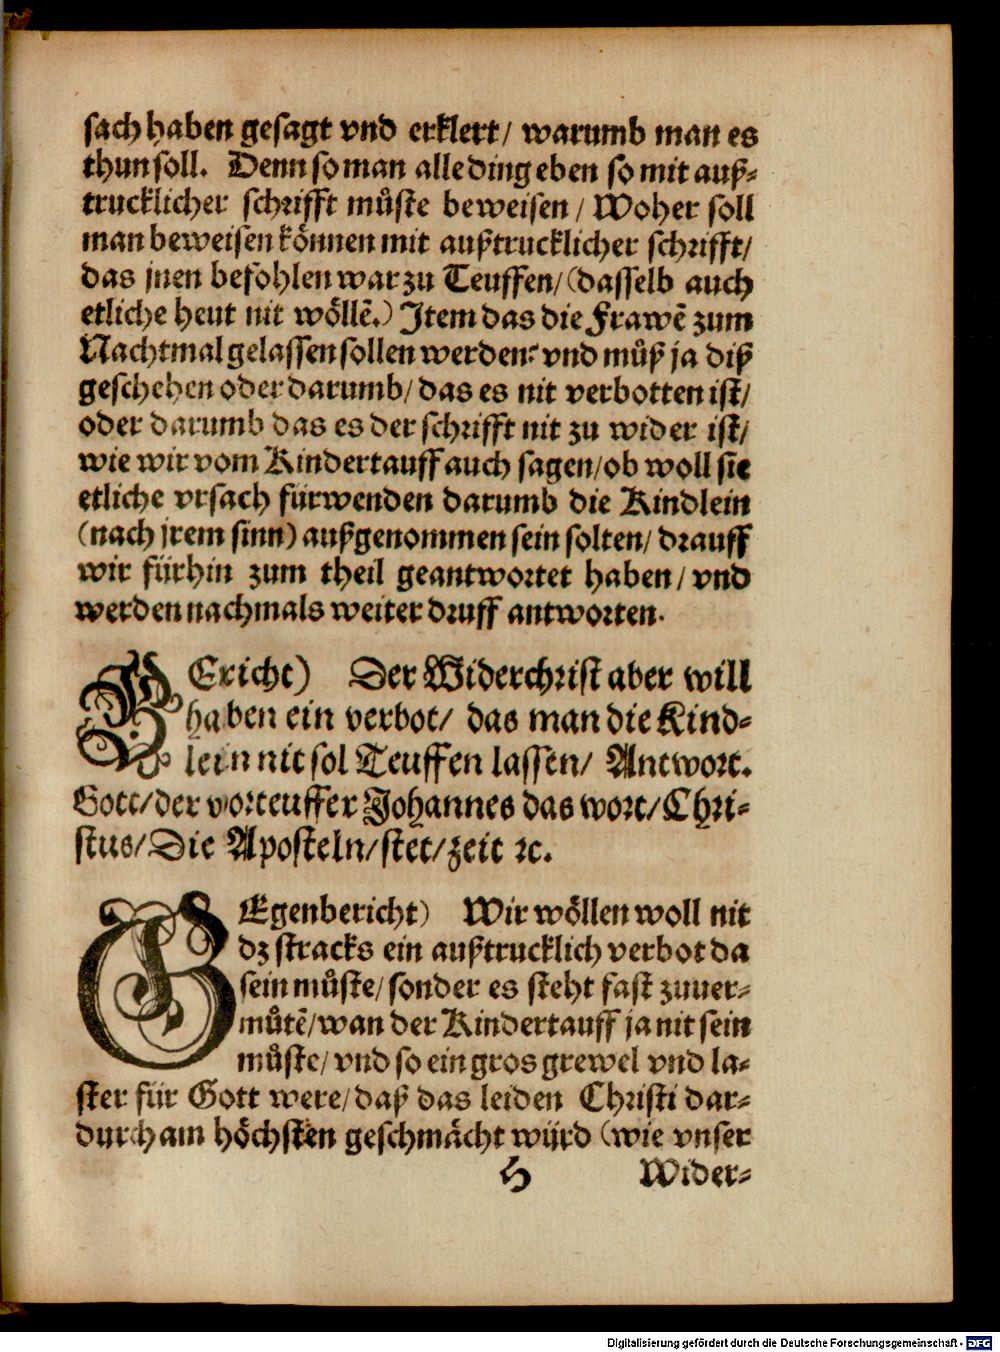 sach haben gesagt vnd erklert / warumb man es
thun soll. Denn so man alle ding eben so mit auß⸗
trucklicher schrifft muͤste beweisen / Woher soll
man beweisen koͤnnen mit außtrucklicher schrifft /
das jnen befohlen war zu Teuffen / (dasselb auch
etliche heut nit woͤllē.) Item das die Frawē zum
Nachtmal gelassen sollen werden: vnd muͤß ja diß
geschehen oder darumb / das es nit verbotten ist /
oder darumb das es der schrifft nit zu wider ist /
wie wir vom Kindertauff auch sagen / ob woll sie
etliche vrsach fürwenden darumb die Kindlein
(nach jrem sinn) außgenommen sein solten / drauff
wir fürhin zum theil geantwortet haben / vnd
werden nachmals weiter druff antworten.
BEricht) Der Widerchrist aber will
haben ein verbot / das man die Kind⸗
lein nit sol Teuffen lassen / Antwort.
Gott / der vorteuffer Johannes das wort / Chri⸗
stus / Die Aposteln / stet / zeit ꝛc.
GEgenbericht) Wir woͤllen woll nit
dz stracks ein außtrucklich verbot da
sein muͤste / sonder es steht fast zuuer⸗
muͤtē / wan der Kindertauff ja nit sein
muͤste / vnd so ein gros grewel vnd la⸗
ster für Gott were / daß das leiden Christi dar⸗
durch am hoͤchsten geschmaͤcht würd (wie vnser
H Wider⸗
Digitalisierung gefördert durch die Deutsche Forschungsgemeinschaft - DFG